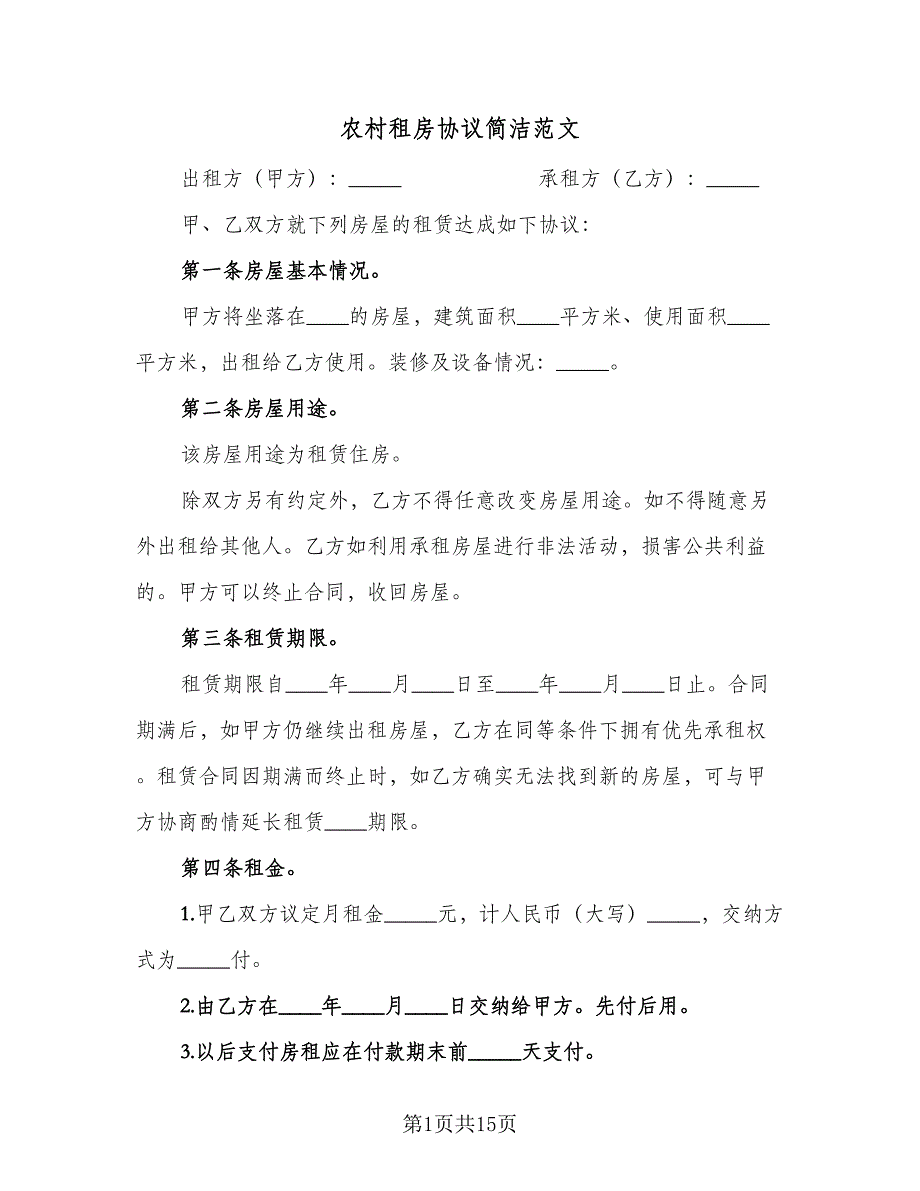 农村租房协议简洁范文
出租方（甲方）：_____ 承租方（乙方）：_____
甲、乙双方就下列房屋的租赁达成如下协议：
第一条房屋基本情况。
甲方将坐落在____的房屋，建筑面积____平方米、使用面积____
平方米，出租给乙方使用。装修及设备情况：_____。
第二条房屋用途。
该房屋用途为租赁住房。
除双方另有约定外，乙方不得任意改变房屋用途。如不得随意另
外出租给其他人。乙方如利用承租房屋进行非法活动，损害公共利益
的。甲方可以终止合同，收回房屋。
第三条租赁期限。
租赁期限自____年____月____日至____年____月____日止。合同
期满后，如甲方仍继续出租房屋，乙方在同等条件下拥有优先承租权
。租赁合同因期满而终止时，如乙方确实无法找到新的房屋，可与甲
方协商酌情延长租赁____期限。
第四条租金。
1.甲乙双方议定月租金_____元，计人民币（大写）_____，交纳方
式为_____付。
2.由乙方在____年____月____日交纳给甲方。先付后用。
3.以后支付房租应在付款期末前_____天支付。
第1页共15页